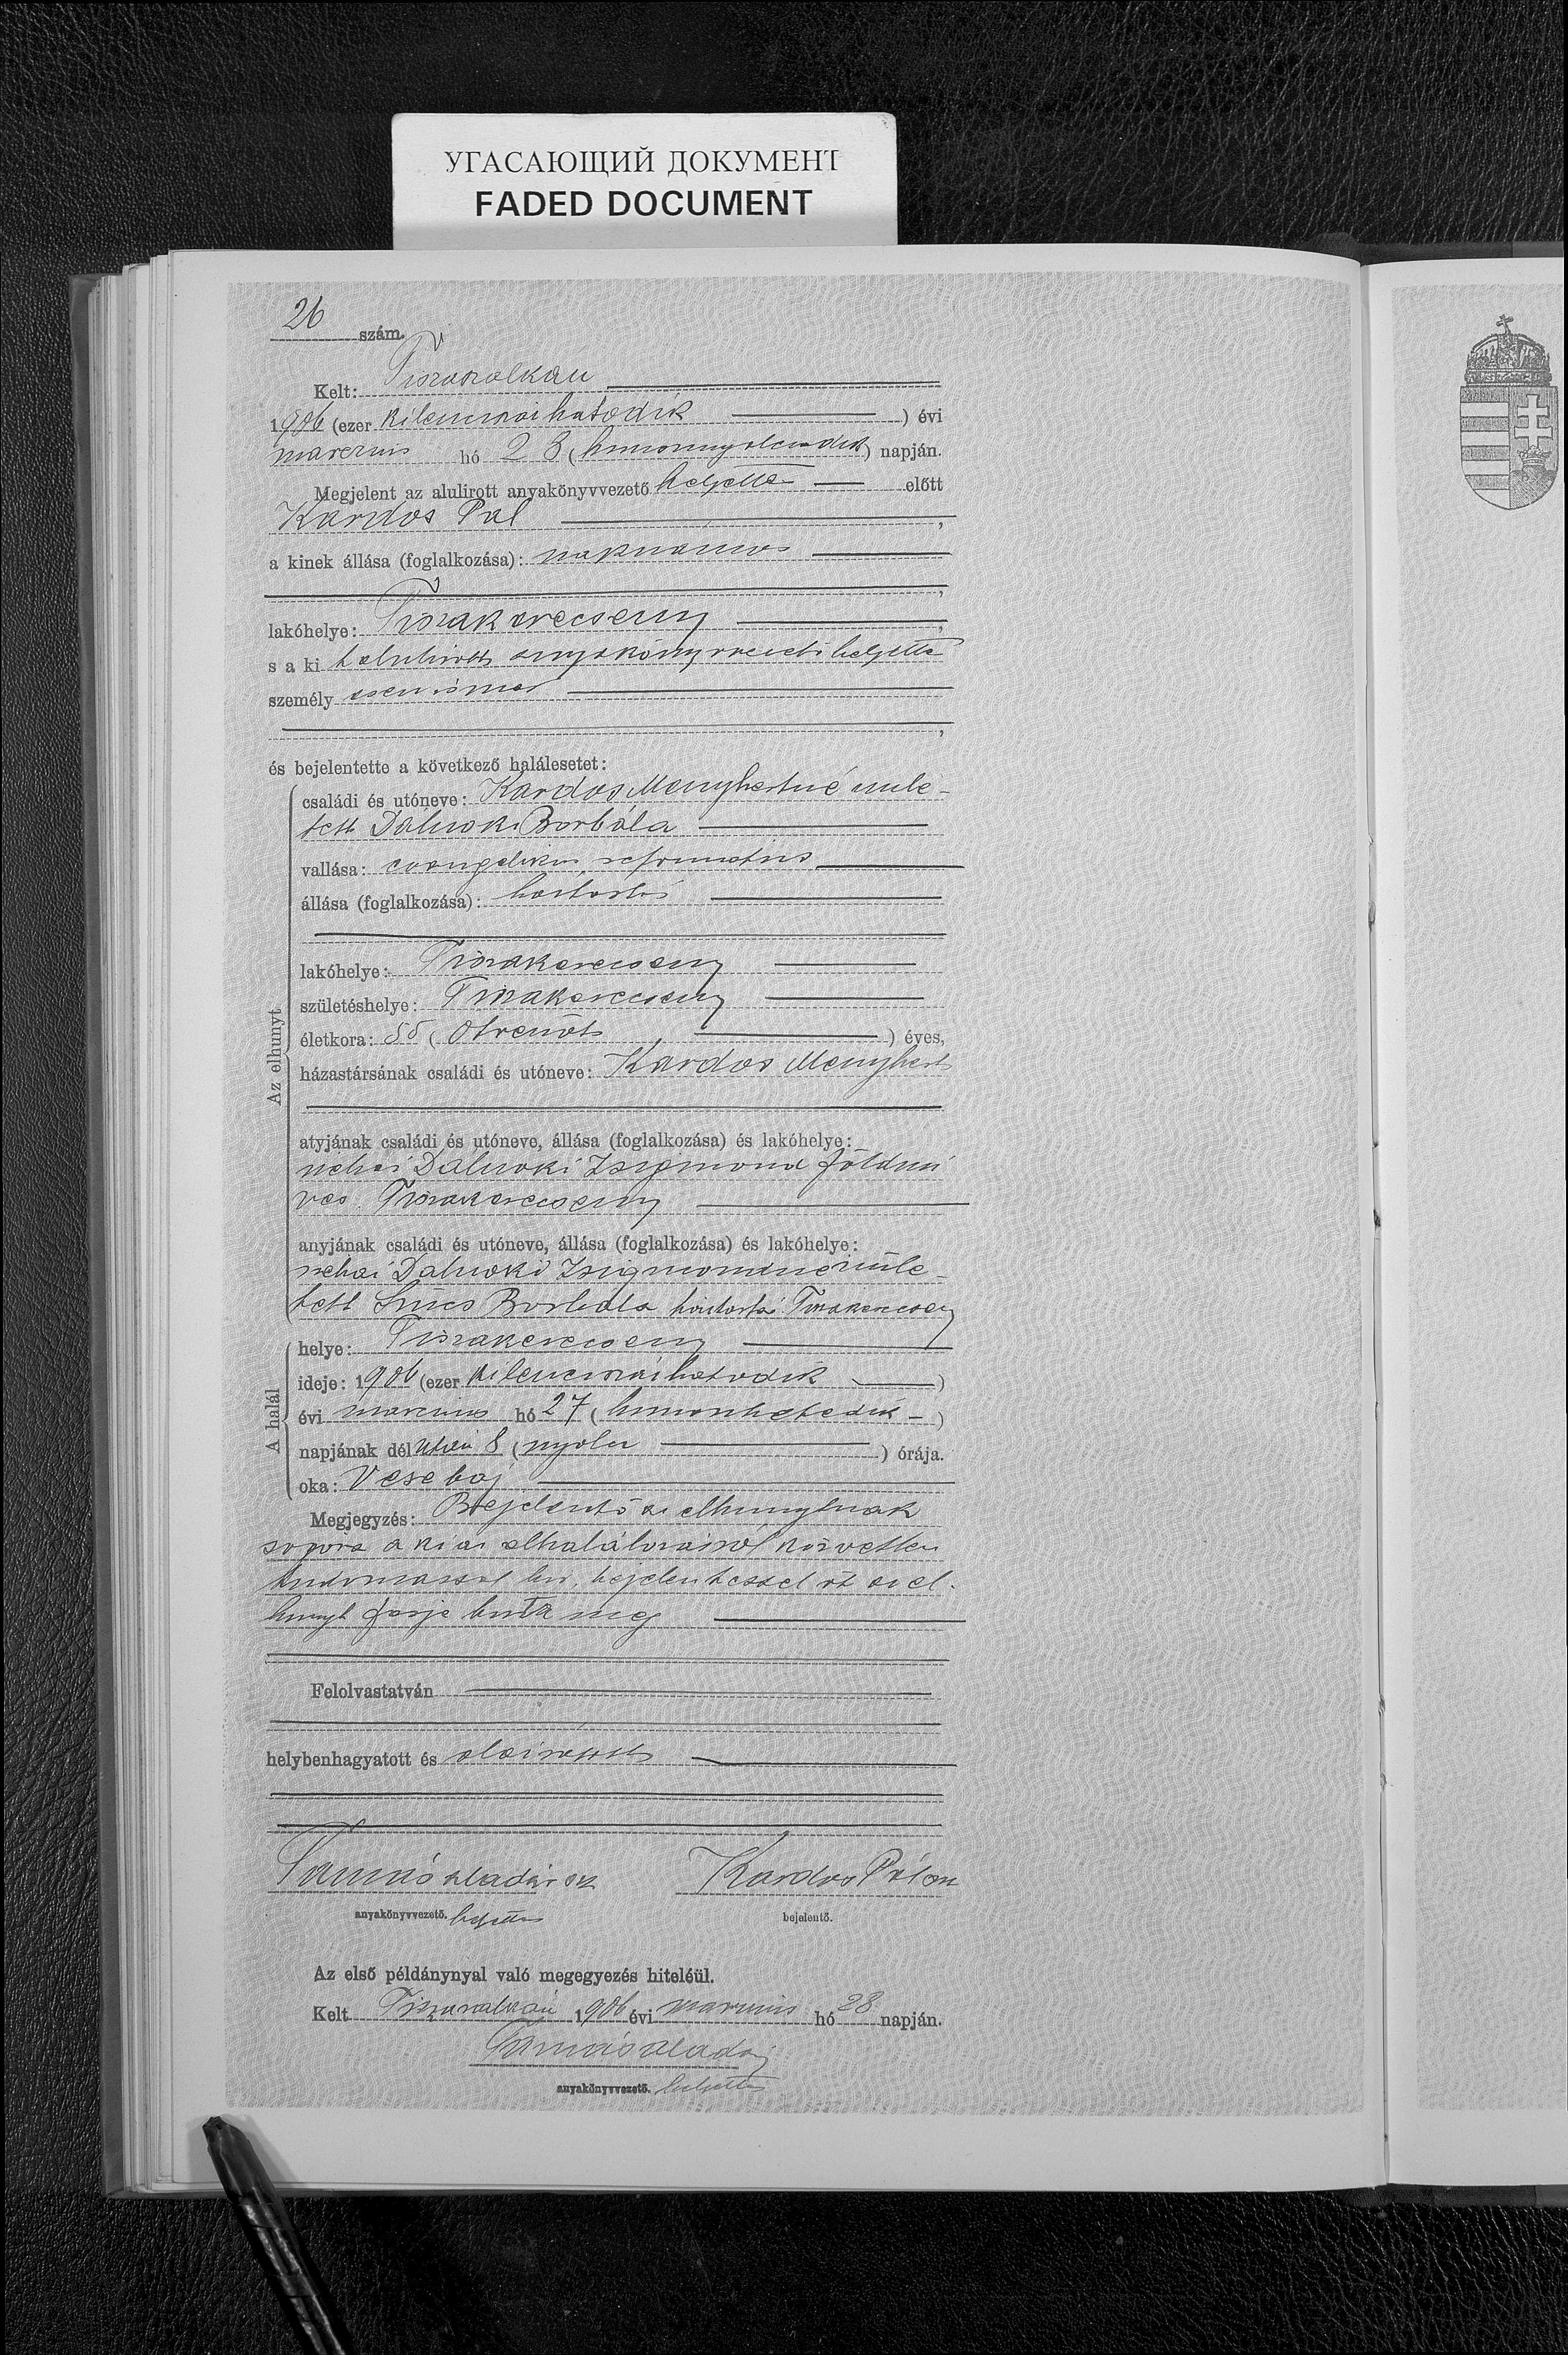 УГАСАЮЩИЙ ДОКУМЕНТ
FADED DOCUMENT
26 szám.
Kelt: Tiszaszalkán
1906 (ezer kilenczszázhatodik) évi
marczius hó 28 (huszonnyolczadik) napján.
Megjelent az alulirott anyakönyvvezető helyettes előtt
Kardos Pál,
a kinek állása (foglalkozása): napszámos
lakóhelye: Tiszakerecseny,
s a ki t alulirott anyakönyvvezető helyettes
személyesen ismer
és bejelentette a következő halálesetet:
Az elhunyt
családi és utóneve: Kardos Menyhertné szüle-
tett Dálnoki Borbála
vallása: evangelikus reformatus
állása (foglalkozása): háztartás
lakóhelye: Tiszakerecseny
születéshelye: Tiszakerecseny
életkora: 55 (ötvenöt) éves,
házastársának családi és utóneve: Kardos Menyhert
atyjának családi és utóneve, állása (foglalkozása) és lakóhelye:
néhai Dálnoki Zsigmond földmi
ves Tiszakerecseny
anyjának családi és utóneve, állása (foglalkozása) és lakóhelye:
néhai Dálnoki Zsigmondné szüle-
tett Szücs Borbála háztartás Tiszakerecseny
A halál
helye: Tiszakerecseny
ideje: 1906 (ezer kilenczszázhatodik)
évi marczius hó 27 (huszonhetedik)
napjának délután 8 (nyolcz) órája.
oka: Vese baj
Megjegyzés: Bejelentő az elhunytnak
sógora a ki az elhalálozásról közvetlen
tudomással bir, bejelentéssel őt az el-
hunyt férje bizta meg
Felolvastatván
helybenhagyatott és aláiratott
Tamás Aladár sk Kardos Pál sk
anyakönyvvezető. helyettes bejelentő.
Az első példánynyal való megegyezés hiteléül.
Kelt Tiszaszalkán 1906 évi marczius hó 28 napján.
Tamás Aladár
anyakönyvvezető. helyettes